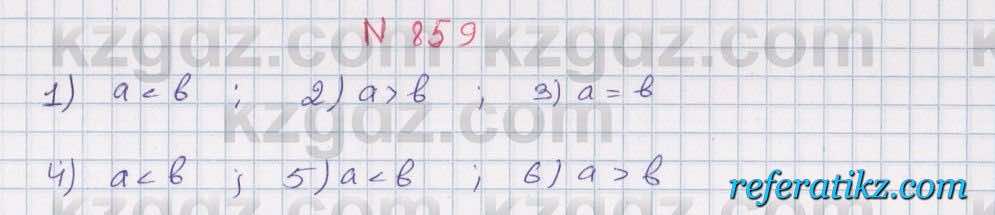 N 859
kzgdz.com kzgdz.com
1) a < в ; 2) a > в ; 3) a = в
kzgdz.com
4) a < в ; 5) a < в ; 6) a > в
referatikz.com